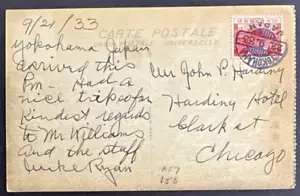 9/21/33
CARTE POSTALE
POSTALE UNIVERSELLE
Yokohama Japan
arrived this
Pm. Had a
nice trip so far
Kindest regards
to Mr Williams
and the staff
Ryan
Mr John P. Harding
Harding Hotel
Clark st
Chicago